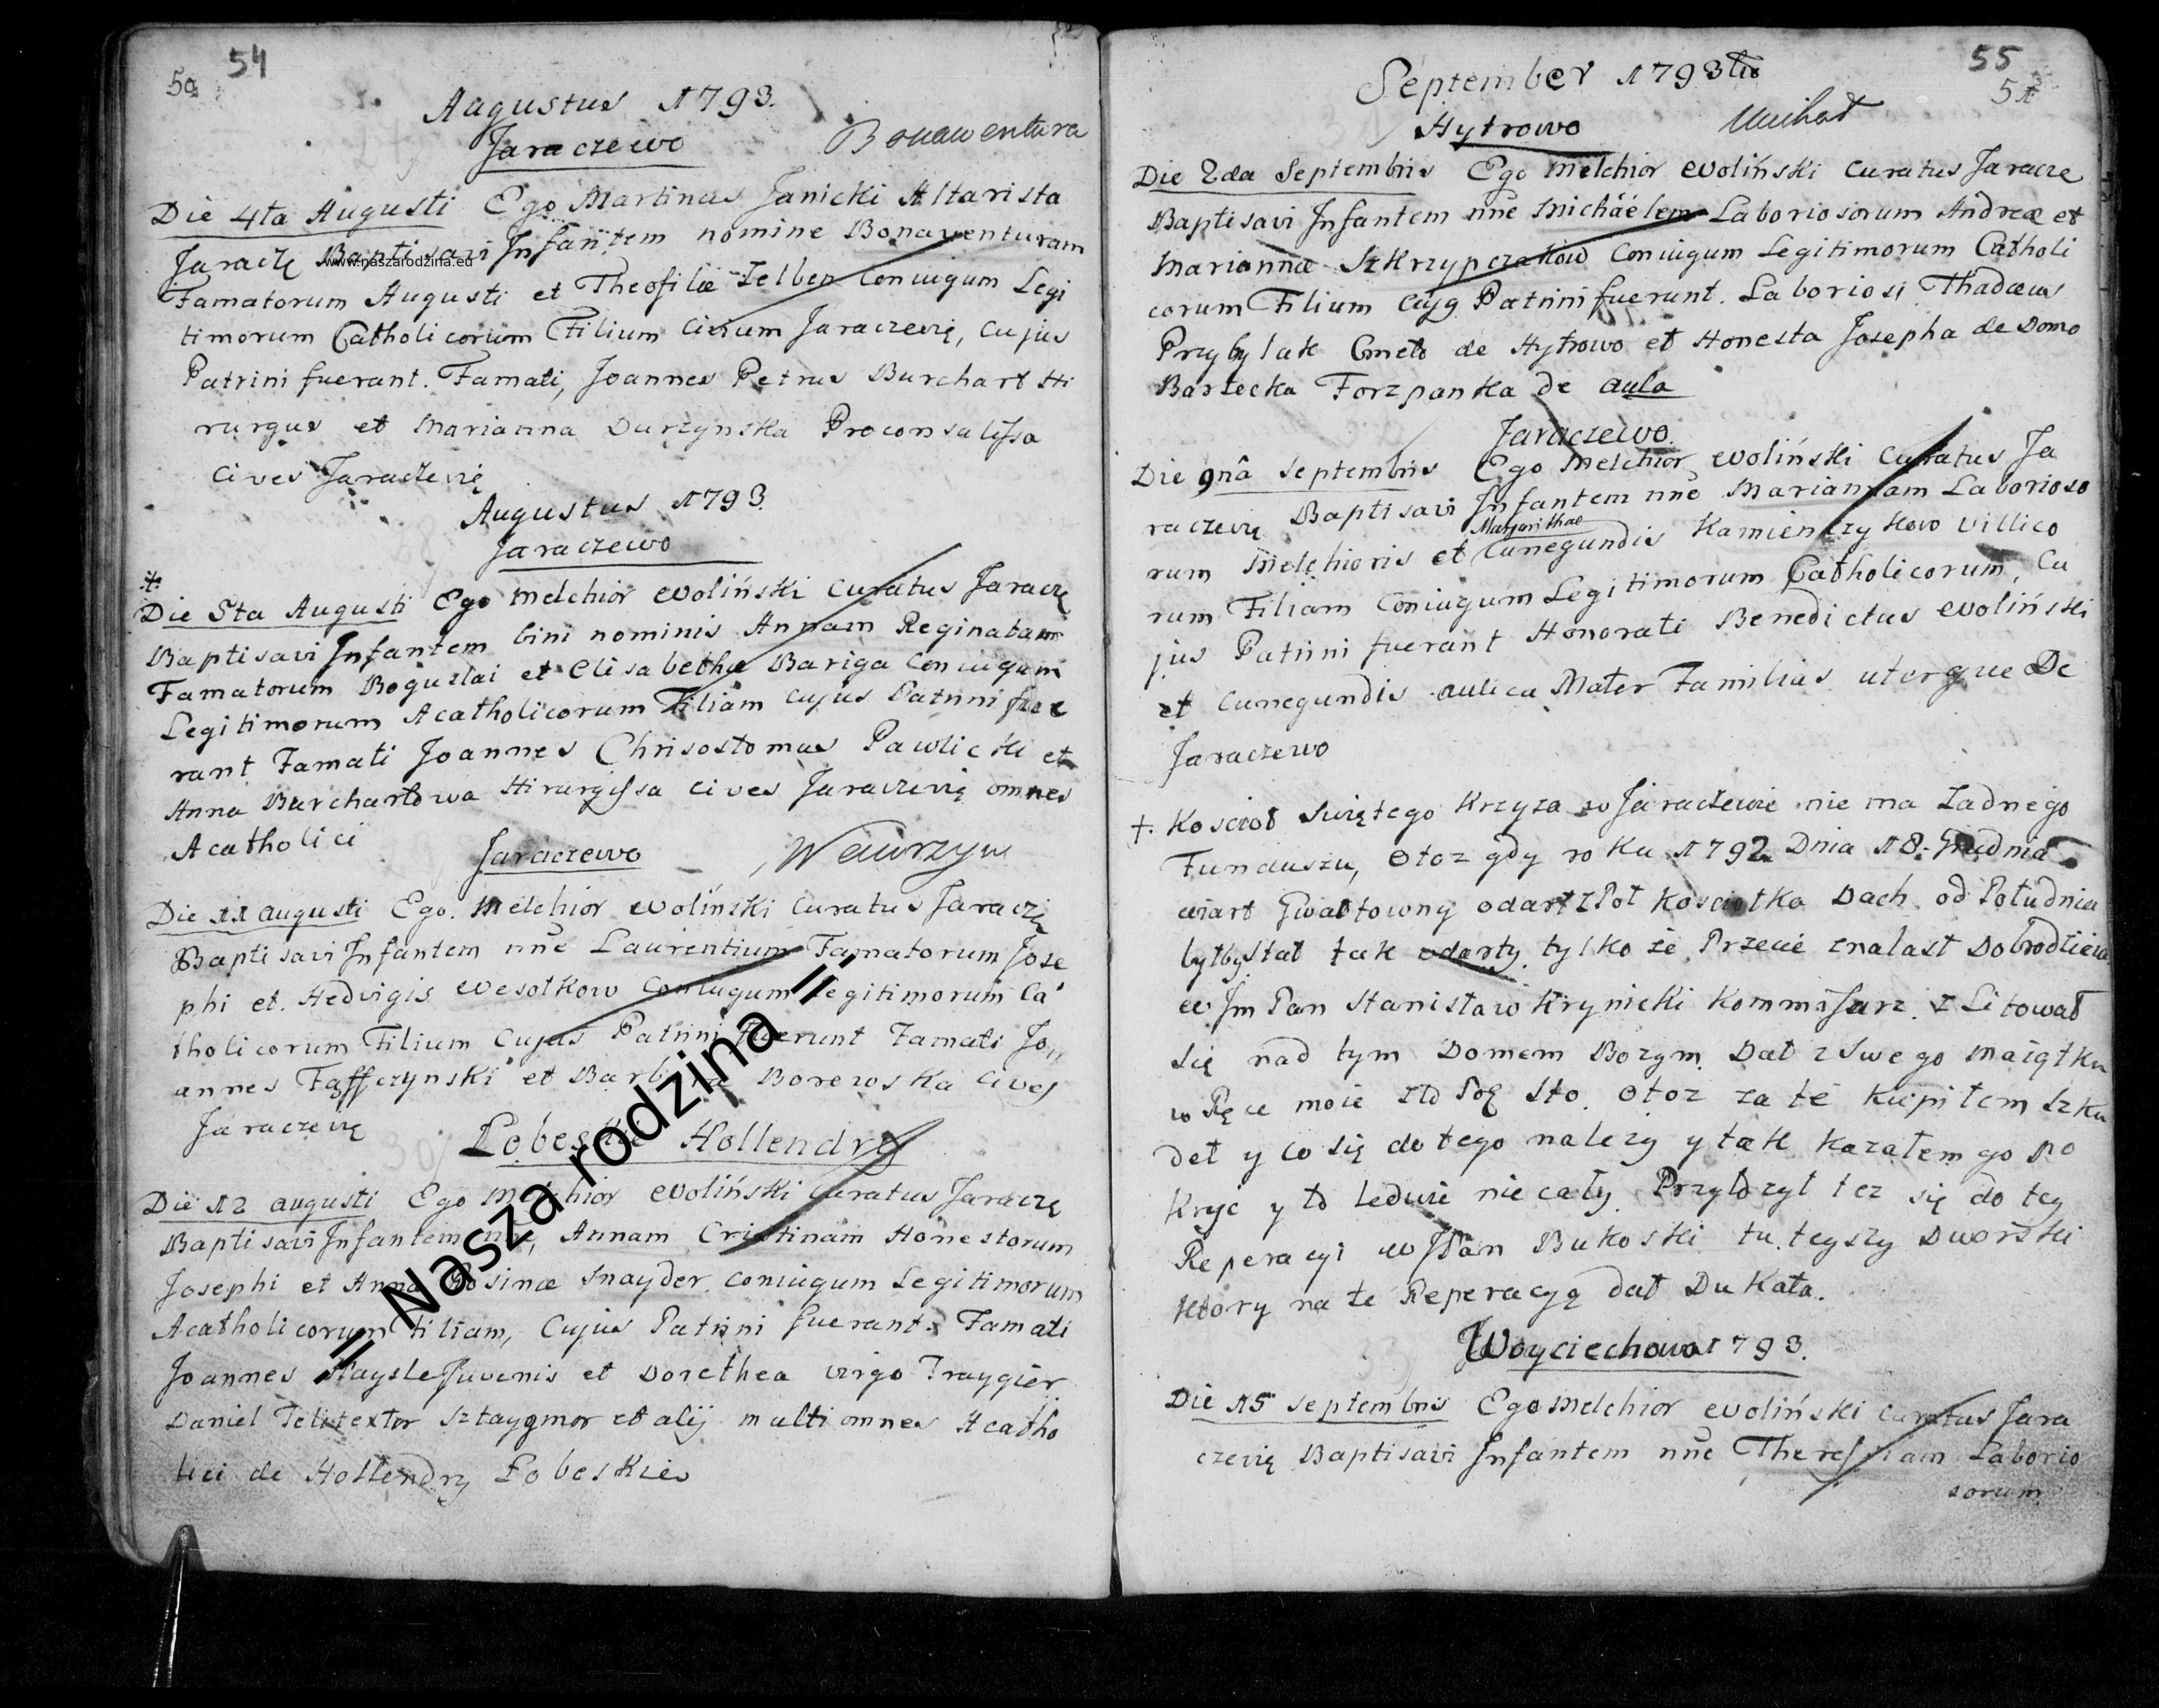 54
50
Augustus 1793.
Jaraczewo
Bonawentura
Die 4ta Augusti Ego Martinus Janicki Altarista
Jaraczę Baptisavi Infantem nomine Bonaventuram
www.naszarodzina.eu
Famatorum Augusti et Theofilæ Zelber Coniugum Legi
timorum Catholicorum Filium Civium Jaraczevię, Cujus
Patrini fuerant. Famati, Joannes Petrus Burchart Hi
rurgus et Marianna Durzynska Proconsulissa
Cives Jaraczevię
Augustus 1793.
Jaraczewo
+
Die 5ta Augusti Ego Melchior Woliński Curatus Jaraczę
Baptisavi Infantem bini nominis Annam Reginatam
Famatorum Boguslai et Elisabethæ Bariga Coniugum
Legitimorum Acatholicorum Filiam Cujus Patrini fue
rant Famati Joannes Chrisostomus Pawlicki et
Anna Burchartowa Hirurgissa Cives Jaraczevię omnes
Acatholici
Jaraczewo
Wawrzyn
Die 11 augusti Ego Melchior Woliński Curatus Jaraczę
Baptisavi Infantem nne Laurentium Famatorum Jose
phi et Hedvigis Wesołkow Coniugum Legitimorum Ca
tholicorum Filium Cujus Patrini fuerunt Famati Jo
annes Fafczynski et Barbara Borewska Cives
Jaraczevię
Łobeskie Hollendry
Die 12 augusti Ego Melchior Woliński Curatus Jaraczę
Baptisavi Infantem nne, Annam Cristinam Honestorum
Josephi et Anna Rosinæ Snayder coniugum Legitimorum
Acatholicorum Filiam, Cujus Patrini fuerant. Famati
Joannes Juvenis et Dorethea virgo Fraygier
Daniel Telitextor Sztaygmor et alij multi omnes Acatho
lici de Hollendry Łobeskies
|| Nasza rodzina ||
55
51
September 1793tio
Hytrowo
Michał
Die 2da Septembris Ego Melchior Woliński Curatus Jaraczę
Baptisavi Infantem nne Michäelem Laboriosorum Andreæ et
Mariannæ Szkrzypczakow Coniugum Legitimorum Catholi
corum Filium Cujq Patrini fuerunt. Laboriosi Thadæus
Przybylak Cmeto de Hytrowo et Honesta Josepha de Domo
Bartecka Forzpanka de aula
Jaraczewo.
Die 9nâ Septembris Ego Melchior Woliński Curatus Ja
raczevię Baptisavi Infantem nne Mariannam Laborioso
Margarithae
rum Melchioris et Cunegundis Kamienczykow villico
rum Filiam Coniugum Legitimorum Catholicorum, Cu
jus Patrini fuerant Honorati Benedictus Woliński
et Cunegundis aulica Mater Familias uterque De
Jaraczewo
+. Koscioł Swiętego Krzyza w Jaraczewie nie ma Zadnego
Funduszu, Otoz gdy roku 1792 Dnia 18. Grudnia
wiart Gwałtowny odart z Poł Kosciołka Dach od Południa
byłby stał tak odarty, tylko ze Przecie znalast Dobrodzieia
W Jm Pan Stanisław Krynicki Kommissarz. Z Litował
się nad tym Domem Bozym. Dał z Swego maiątku
w Ręce moie Sto. Otoz za te kupiłem Szku
deł y co się do tego nalezy y tak kazałem go po
kryć y to ledwie nie cały. Przyłozył tez się do tey
Reperacyi W JPan Bukoski tuteyszy Dworski
ktory na te Reperacyą dał Dukata.
Woyciechowo 1793.
Die 15 Septembris Ego Melchior Woliński Curatus Jara
czevię Baptisavi Infantem nne Theressiam Laborio
sorum